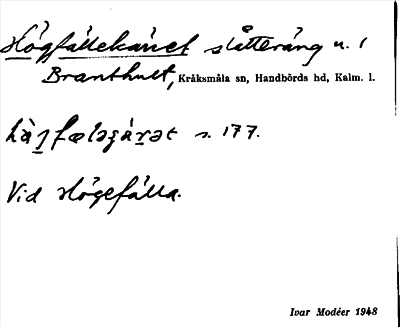 Högfällekärret slåtteräng u. 1
Branthult, Kråksmåla sn, Handbörds hd, Kalm. l.
s. 177.
Vid Högefälla.
Ivar Modéer 1948